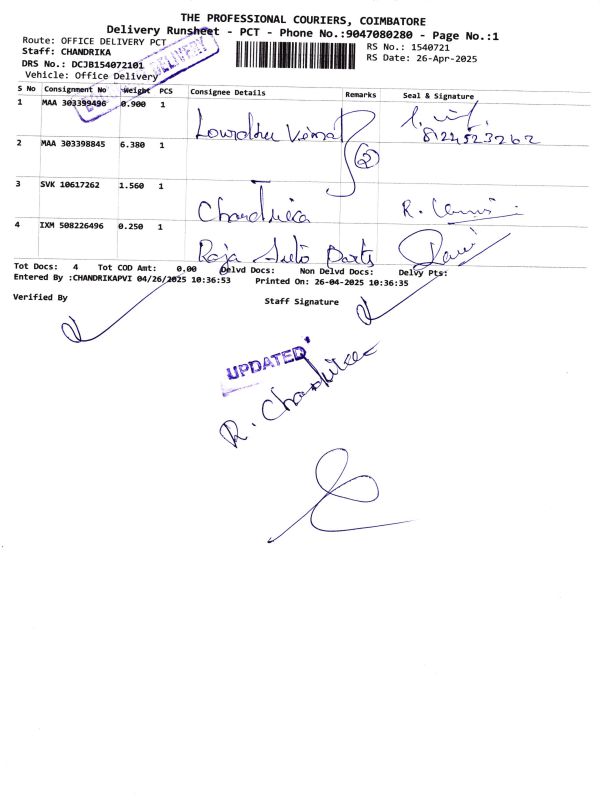 THE PROFESSIONAL COURIERS, COIMBATORE
Delivery Runsheet - PCT - Phone No.:9047080280 - Page No.:1
Route: OFFICE DELIVERY PCT
RS No.: 1540721
Staff: CHANDRIKA
RS Date: 26-Apr-2025
DRS No.: DCJB154072101
DELIVERY
Vehicle: Office Delivery
S No Consignment No Weight PCS Consignee Details Remarks Seal & Signature
1 MAA 303399496 0.900 1
8124523262
2 MAA 303398845 6.380 1 2
3 SVK 10617262 1.560 1 Chandrika R.
4 IXM 508226496 0.250 1 Raja Auto Parts
Tot Docs: 4 Tot COD Amt: 0.00 Delvd Docs: Non Delvd Docs: Delvy Pts:
Entered By :CHANDRIKAPVI 04/26/2025 10:36:53 Printed On: 26-04-2025 10:36:35
Verified By Staff Signature
UPDATED
R. Chandrika